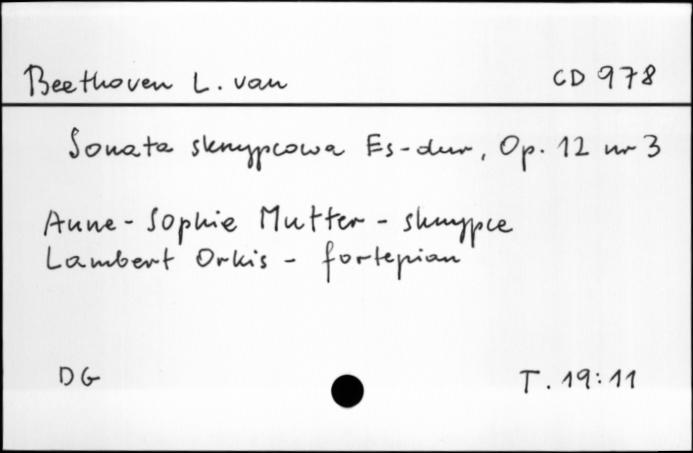 Beethoven L. van CD 978
Sonata skrzypcowa Es-dur, Op. 12 nr 3
Anne-Sophie Mutter - skrzypce
Lambert Orkis - fortepian
DG T. 19:11